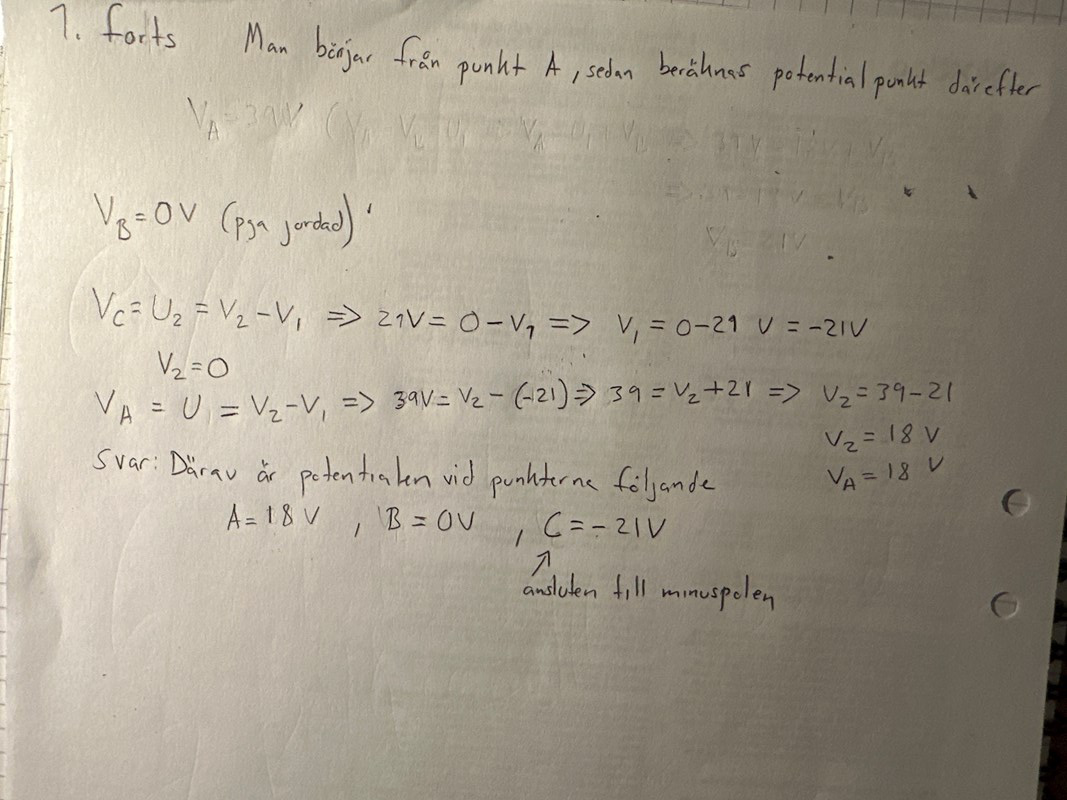 1. forts Man börjar från punkt A, sedan beräknas potential punkt därefter
V_B = 0V (pga jordad)
V_C = U_2 = V_2 - V_1 => 21V = 0 - V_1 => V_1 = 0-21 V = -21V
V_2 = 0
V_A = U_1 = V_2 - V_1 => 39V = V_2 - (-21) => 39 = V_2 + 21 => V_2 = 39-21
V_2 = 18 V
V_A = 18 V
Svar: Därav är potentialen vid punkterna följande
A = 18 V , B = 0V , C = -21V
↑
ansluten till minuspolen